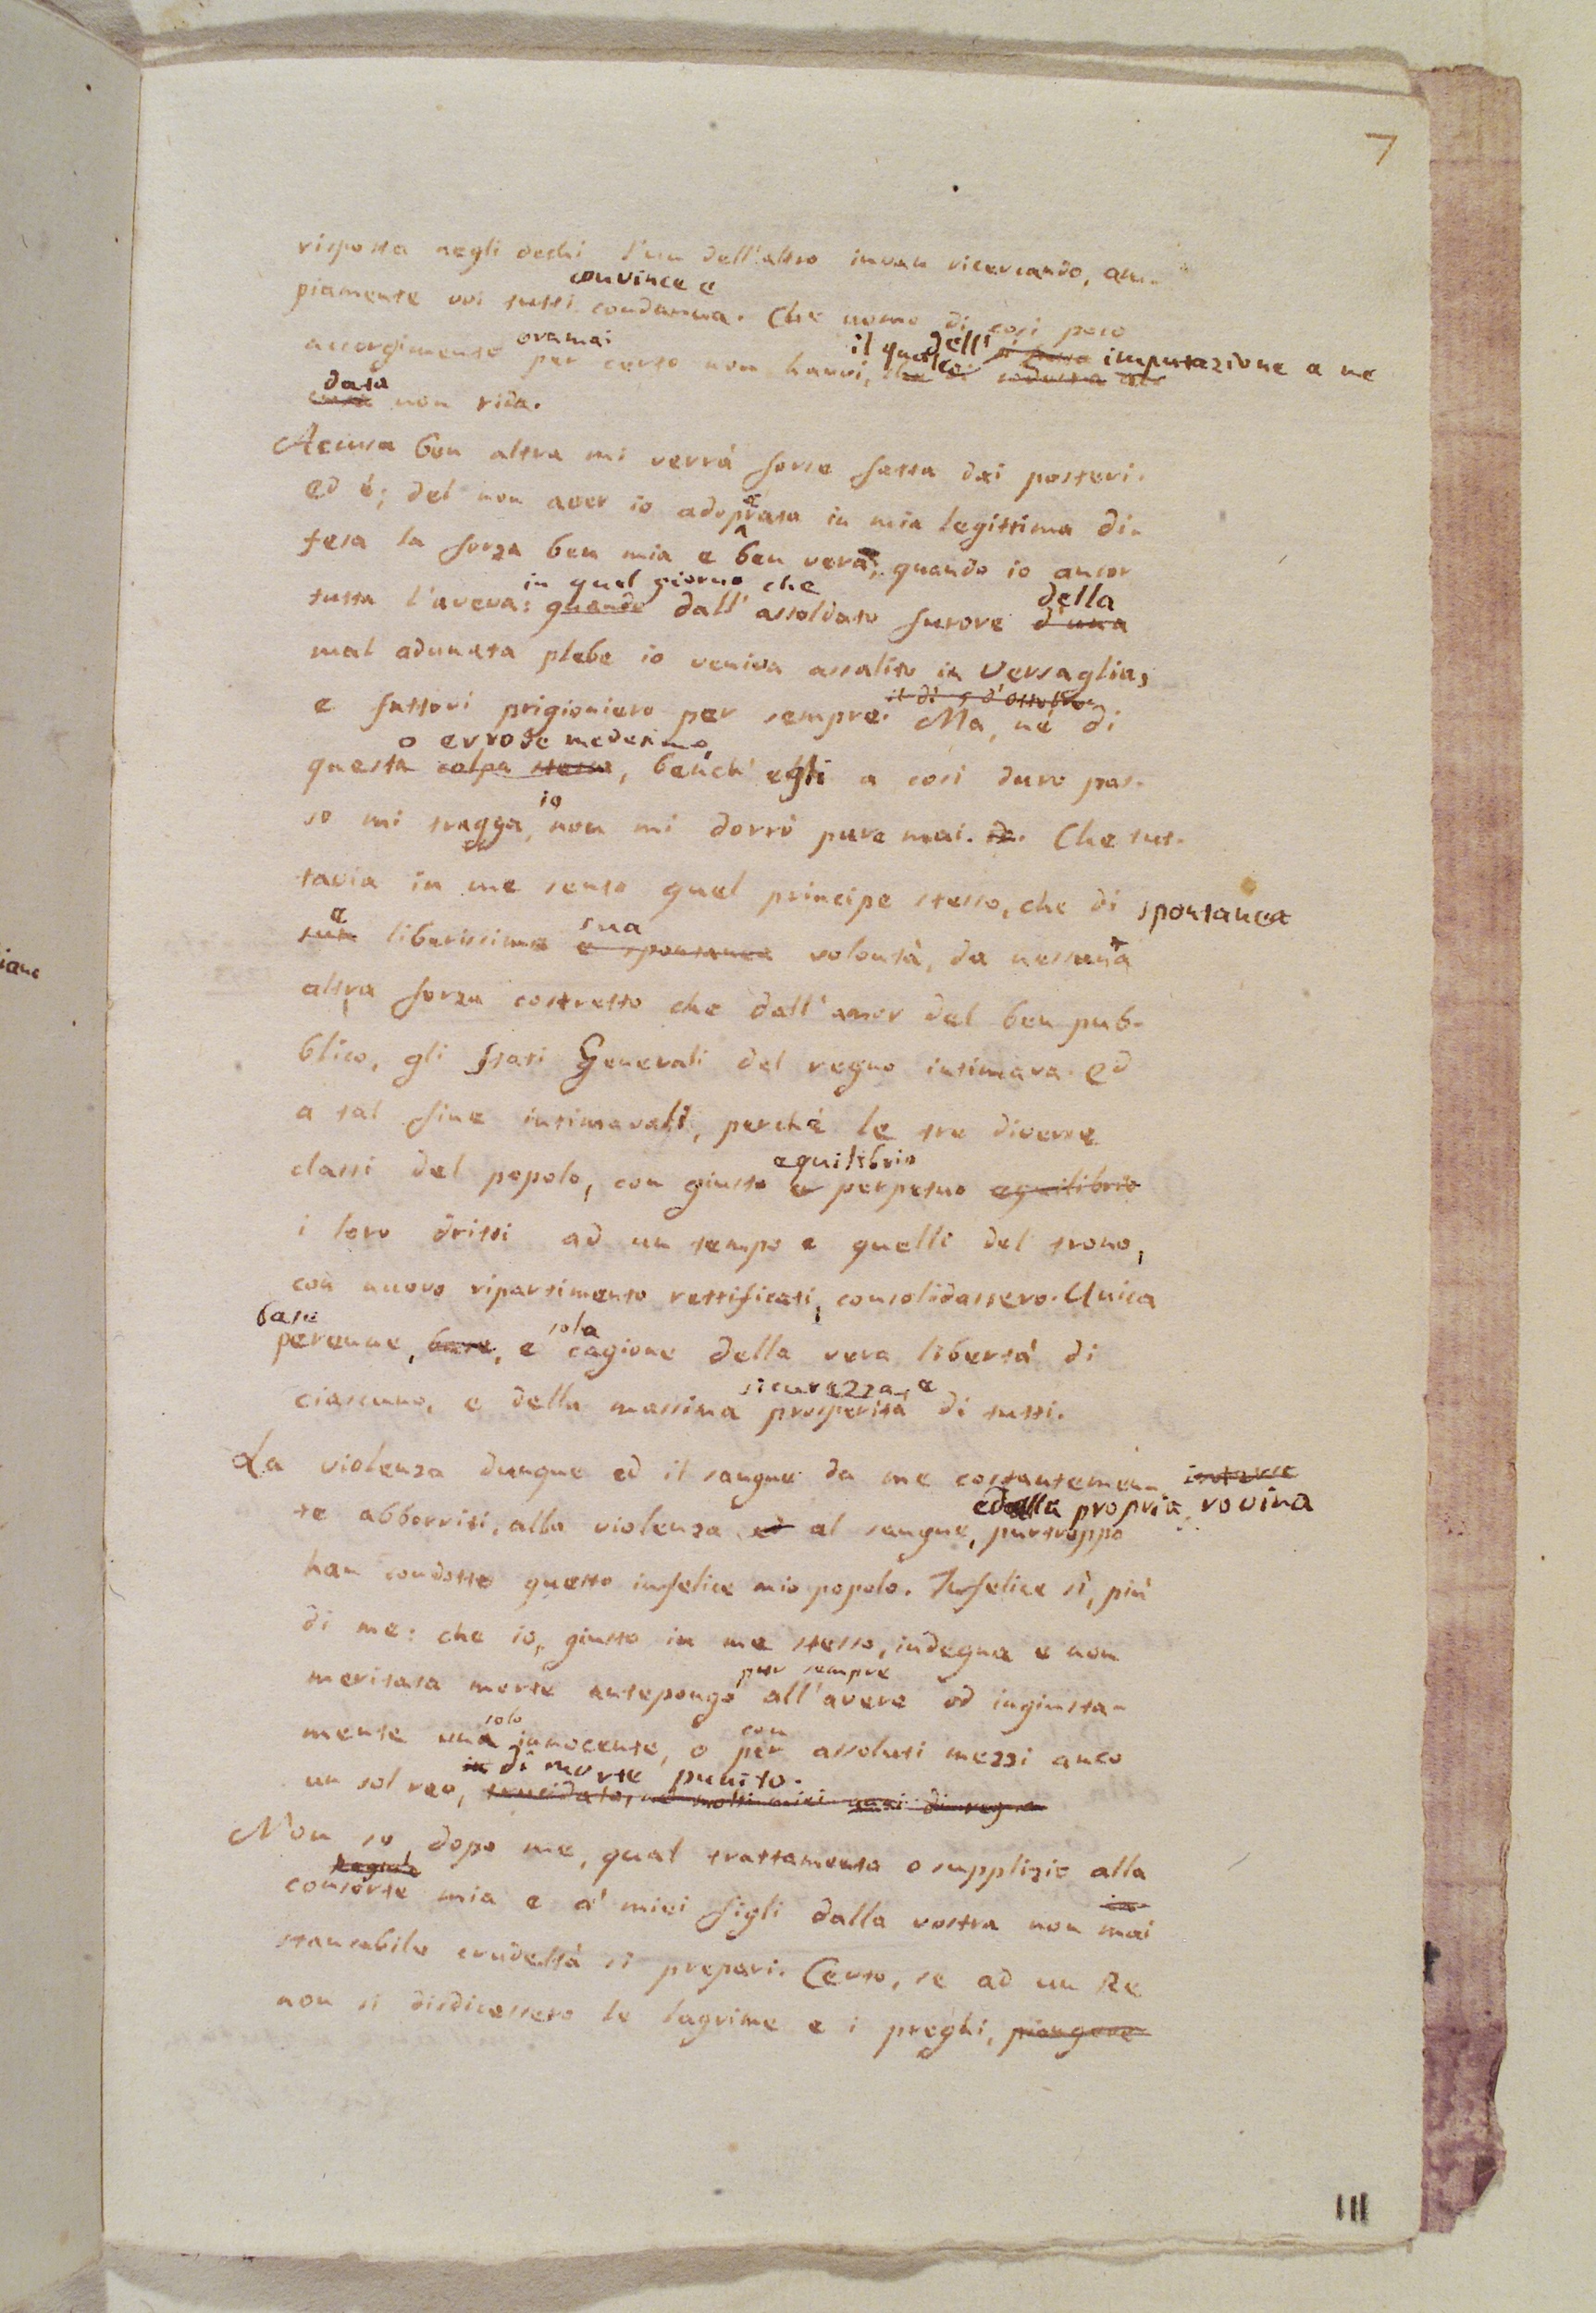 7
risposta negli occhi l'un dell'altro invan ricercando, am-
convince e
piamente voi tutti condanna. Che uomo di così poco
oramai il quale dell' imputazione a me
accorgimento per certo non havvi, che di
data
non rida.
Accusa ben altra mi verrà forse fatta dai posteri.
ed è; del non aver io adoprata in mia legittima di-
fesa la forza ben mia e ben vera, quando io ancor
in quel giorno che della
tutta l'aveva: quando dall'assoldato furore d'una
mal adunata plebe io veniva assalito in Versaglia,
il dì 5 d'Ottobre
e fattovi prigioniero per sempre. Ma, nè di
o errore medesimo,
questa colpa stessa, bench'egli a così duro pas-
io
so mi tragga, non mi dorrò pure mai. Che tut-
tavia in me sento quel principe stesso, che di spontanea
e sua
sua liberissima e spontanea volontà, da nessuna
altra forza costretto che dall'amor del ben pub-
blico, gli Stati Generali del regno intimava. ed
a tal fine intimavali, perchè le tre diverse
equilibrio
classi del popolo, con giusto e perpetuo equilibrio
i loro dritti ad un tempo e quelli del trono,
con nuovo ripartimento rettificati, consolidassero. Unica
base sola
perenne, base, e cagione della vera libertà di
sicurezza, e
ciascuno, e della massima prosperità di tutti.
La violenza dunque ed il sangue da me costantemen-
ed alla propria rovina
te abborriti, alla violenza ed al sangue, purtroppo
han condotto questo infelice mio popolo. Infelice sì, più
di me: che io, giusto in me stesso, indegna e non
per sempre
meritata morte antepongo all'avere od ingiusta-
solo con
mente un innocente, o per assoluti mezzi anco
in di morte punito.
un sol reo, trucidato, ne' molti miei anni di regno
Non so, dopo me, qual trattamento o supplizio alla
consorte mia e a' miei figli dalla vostra non mai
stancabile crudeltà si prepari. Certo, se ad un Re
non si disdicessero le lagrime e i preghi, piangere
III